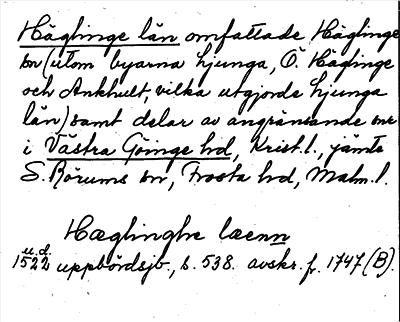 Häglinge län omfattade Häglinge
sn (utom byarna Hjunga, Ö. Häglinge
och Ankhult, vilka utgjorde Hjunga
län) samt delar av angränsande snr
i Västra Göinge hd, Krist. l., jämte
S. Rörums sn, Frosta hd, Malm. l.
Hæglinghe læenn
u.d.
1522 uppbördsjb, s. 538. avskr. f. 1747 (B).